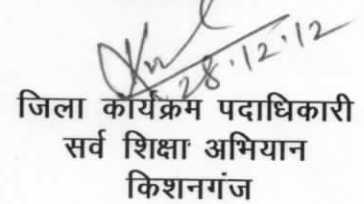 28.12.12
जिला कार्यक्रम पदाधिकारी
सर्व शिक्षा अभियान
किशनगंज